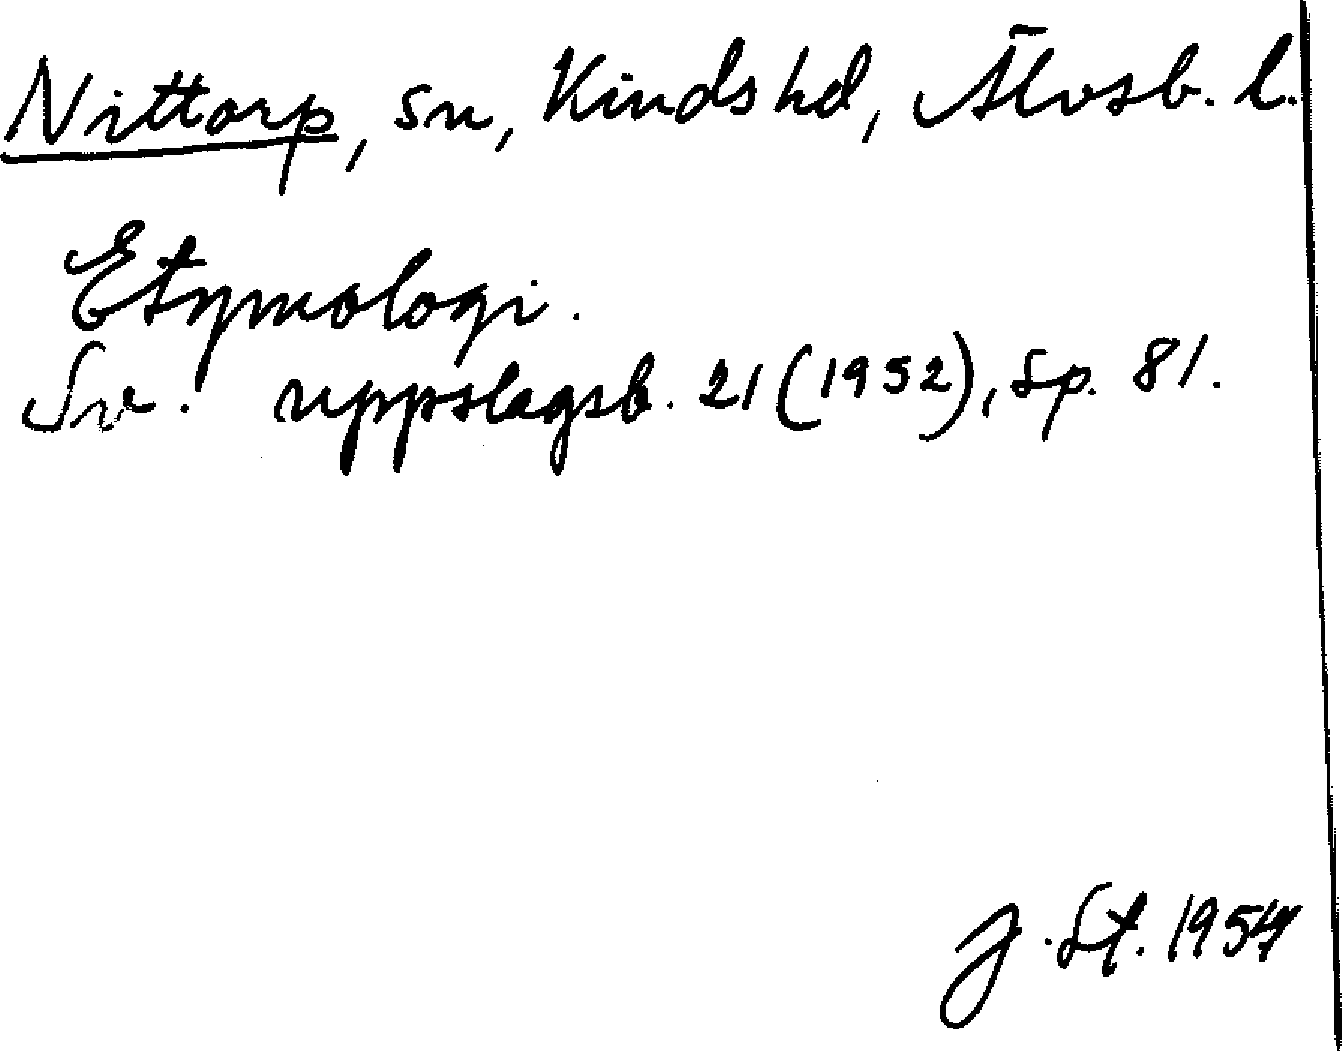 Nittorp, sn, Kinds hd, Älvsb. l.
Etymologi.
Sv. uppslagsb. 21 (1952), sp. 81.
J. St. 1954